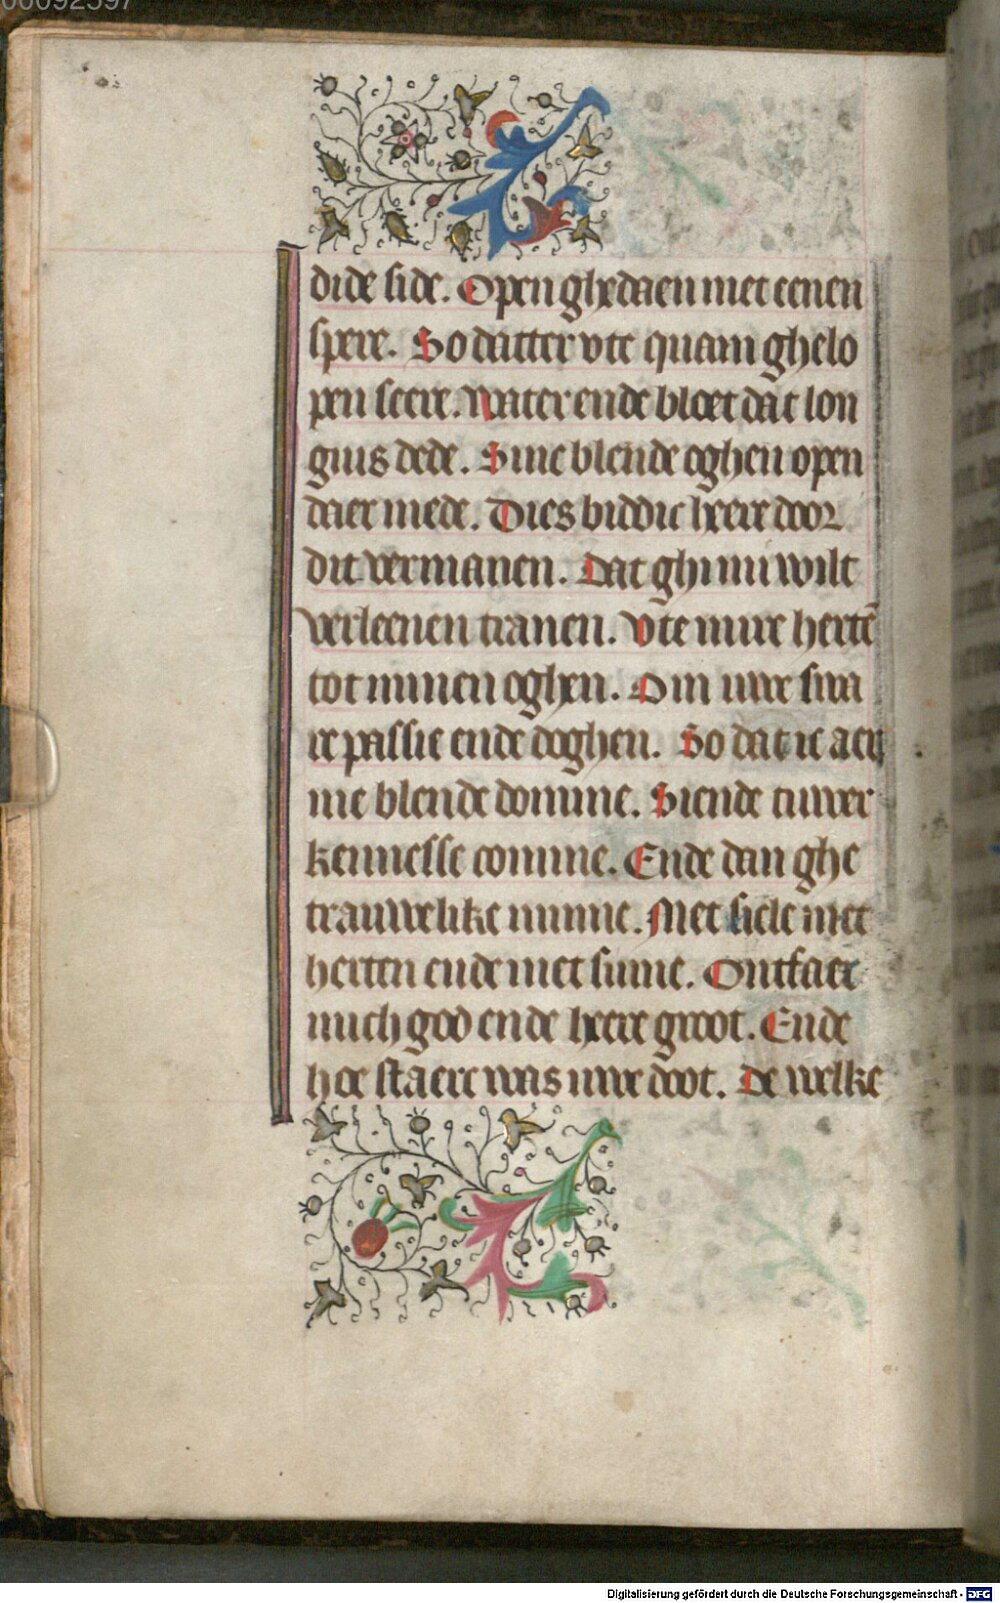 00092597
dide side. Open ghedaen met eenen
spere. So datter vte quam ghelo
pen seere. Water ende bloet dat lon
gius dede. Sine blende oghen open
daer mede. Dies biddic heere door
dit vermanen. Dat ghi mi wilt
verleenen tranen. Vte mire hertē
tot minen oghen. Om uwe swa
re passie ende doghen. So dat ic aer
me blende domme. Siende tuwer
kennesse comme. Ende dan ghe
trauwelike minne. Met siele met
herten ende met sinne. Ontfaet
mich god ende heere groot. Ende
hoe staerc was uwe doot. De welke
Digitalisierung gefördert durch die Deutsche Forschungsgemeinschaft - DFG